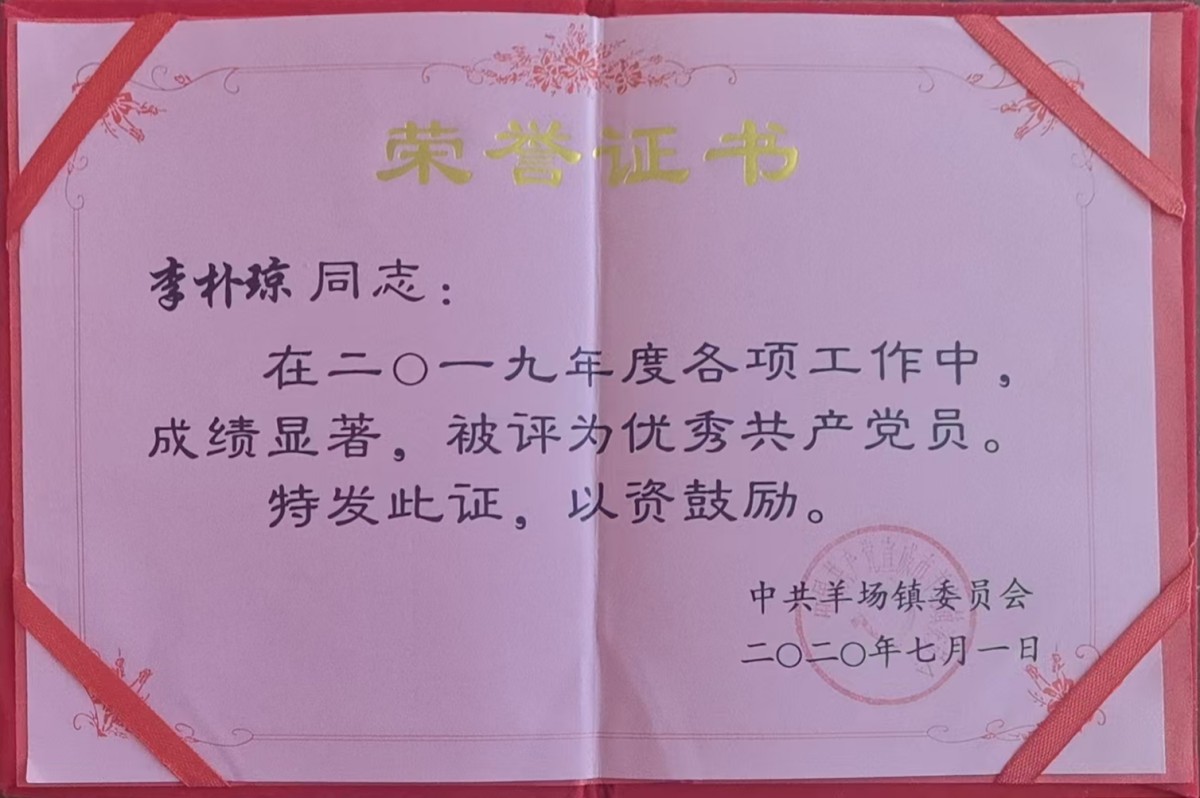 荣誉证书
李朴琼同志：
在二〇一九年度各项工作中，
成绩显著，被评为优秀共产党员。
特发此证，以资鼓励。
中共羊场镇委员会
二〇二〇年七月一日